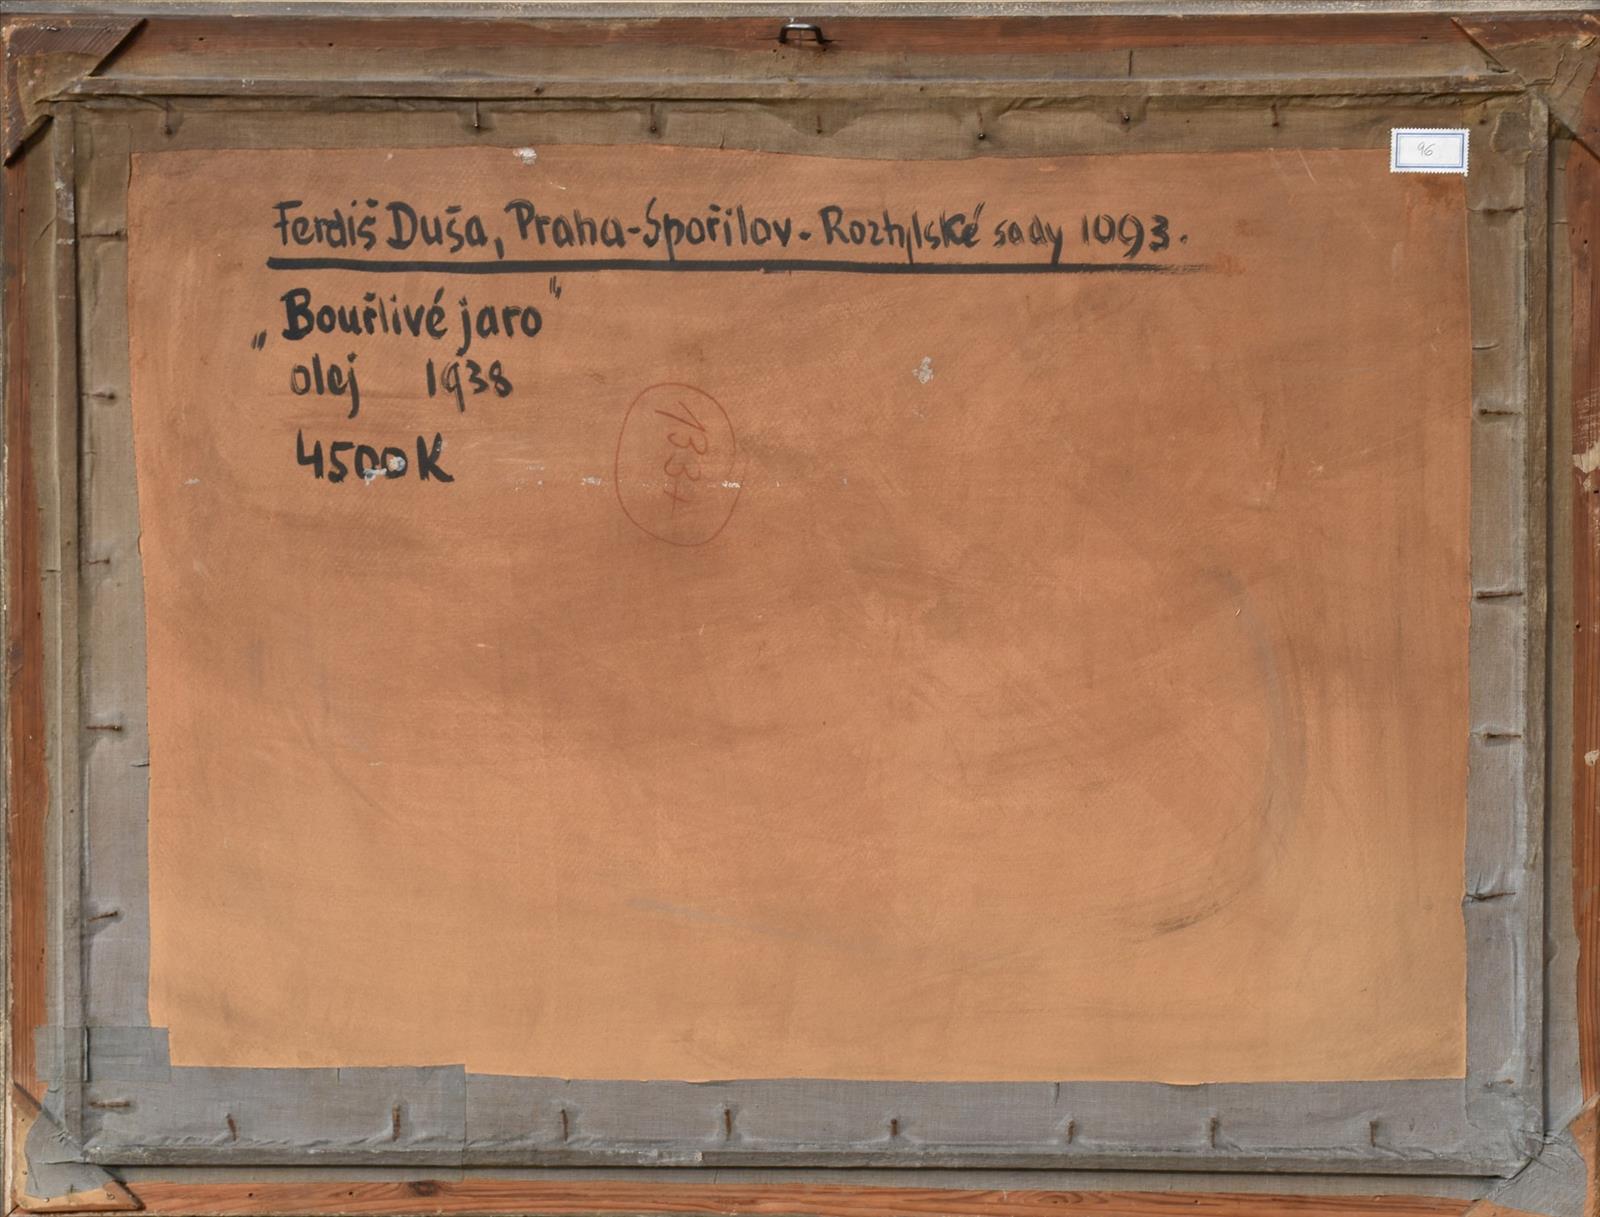 96
Ferdiš Duša, Praha-Spořilov. Roztylské sady 1093.
„Bouřlivé jaro"
olej 1938
4500 K